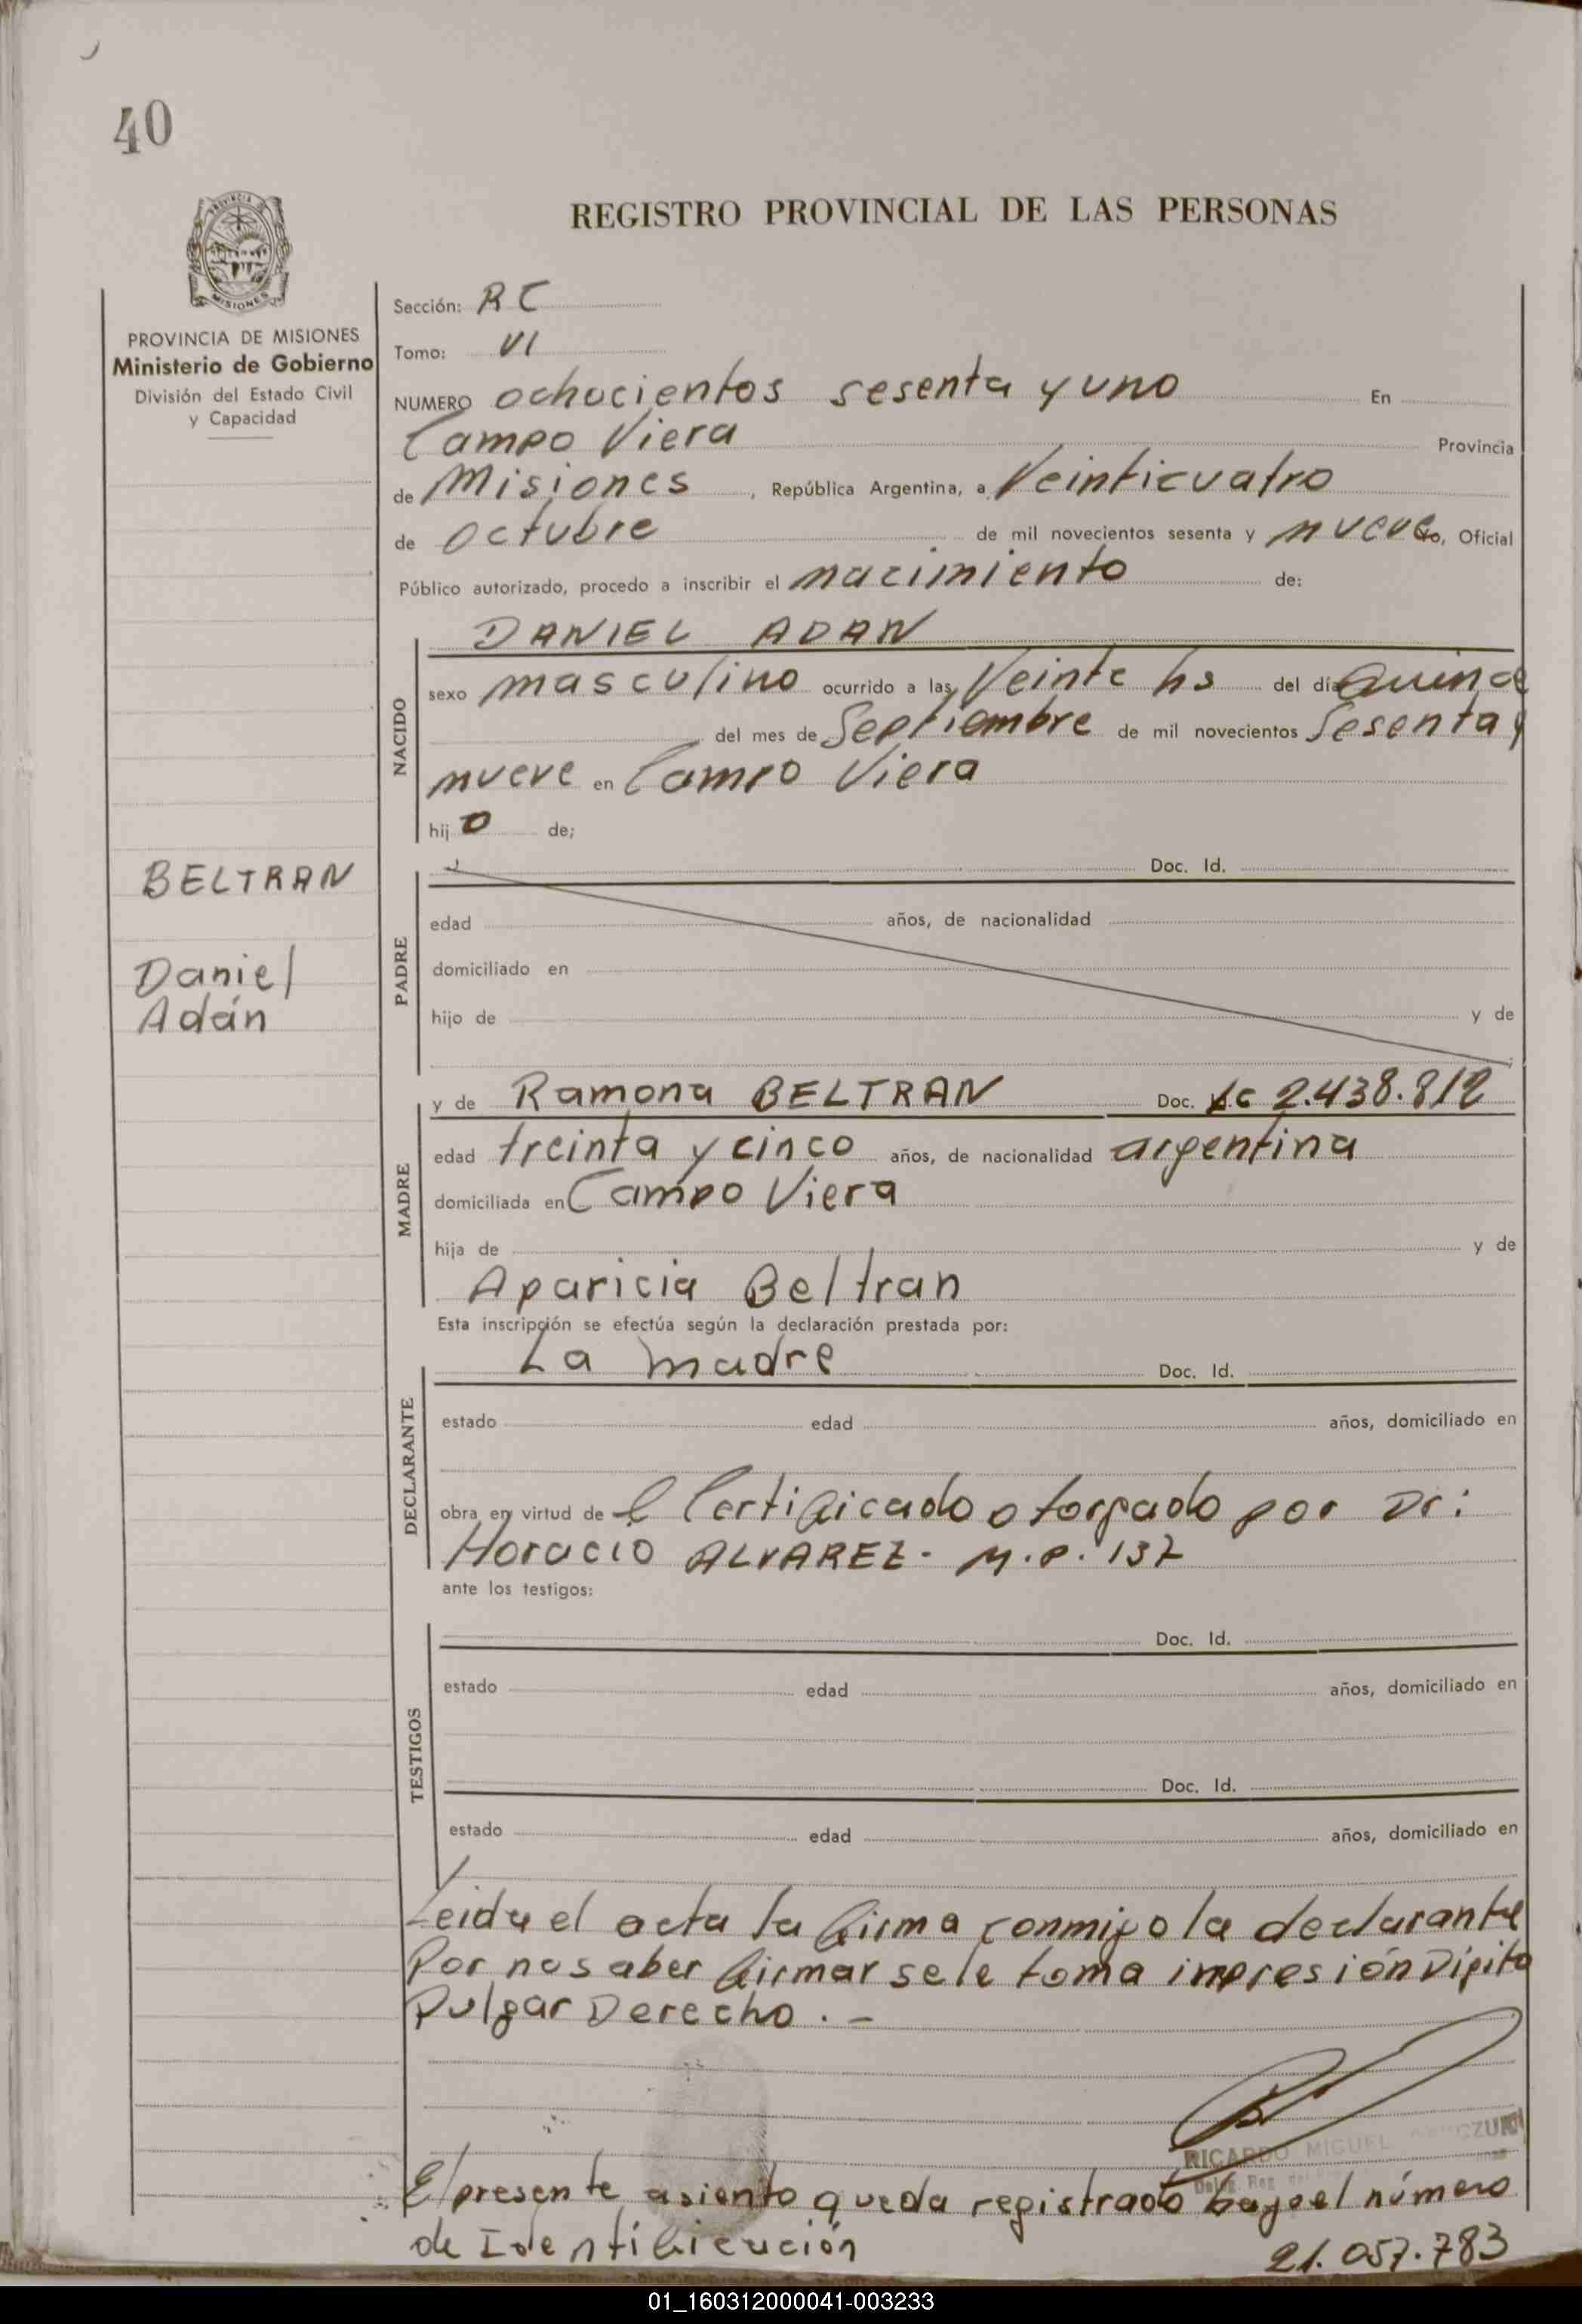 40
REGISTRO PROVINCIAL DE LAS PERSONAS
MISIONES
PROVINCIA DE MISIONES
Ministerio de Gobierno
División del Estado Civil
y Capacidad
Sección: RC
Tomo: VI
NUMERO ochocientos sesenta y uno En
Campo Viera Provincia
de Misiones, República Argentina, a Veinticuatro
de octubre de mil novecientos sesenta y nueve, Oficial
Público autorizado, procedo a inscribir el nacimiento de:
NACIDO
DANIEL ADAN
sexo masculino ocurrido a las Veinte hs del día Quince
del mes de Septiembre de mil novecientos Sesenta y
nueve en Campo Viera
hijo de;
BELTRAN
Daniel
Adán
PADRE
Doc. Id.
edad años, de nacionalidad
domiciliado en
hijo de y de
MADRE
y de Ramona BELTRAN Doc. LC 2.438.812
edad treinta y cinco años, de nacionalidad argentina
domiciliada en Campo Viera
hija de y de
Aparicia Beltran
Esta inscripción se efectúa según la declaración prestada por:
DECLARANTE
La madre Doc. Id.
estado edad años, domiciliado en
obra en virtud de el Certificado otorgado por Dr:
Horacio ALVAREZ- M.P. 137
ante los testigos:
TESTIGOS
Doc. Id.
estado edad años, domiciliado en
Doc. Id.
estado edad años, domiciliado en
Leida el acta la firma conmigo la declarante
Por no saber firmar se le toma impresión Dígito
Pulgar Derecho.-
RICARDO MIGUEL
El presente asiento queda registrado bajo el número
de Identificación 21.057.783
01_160312000041-003233